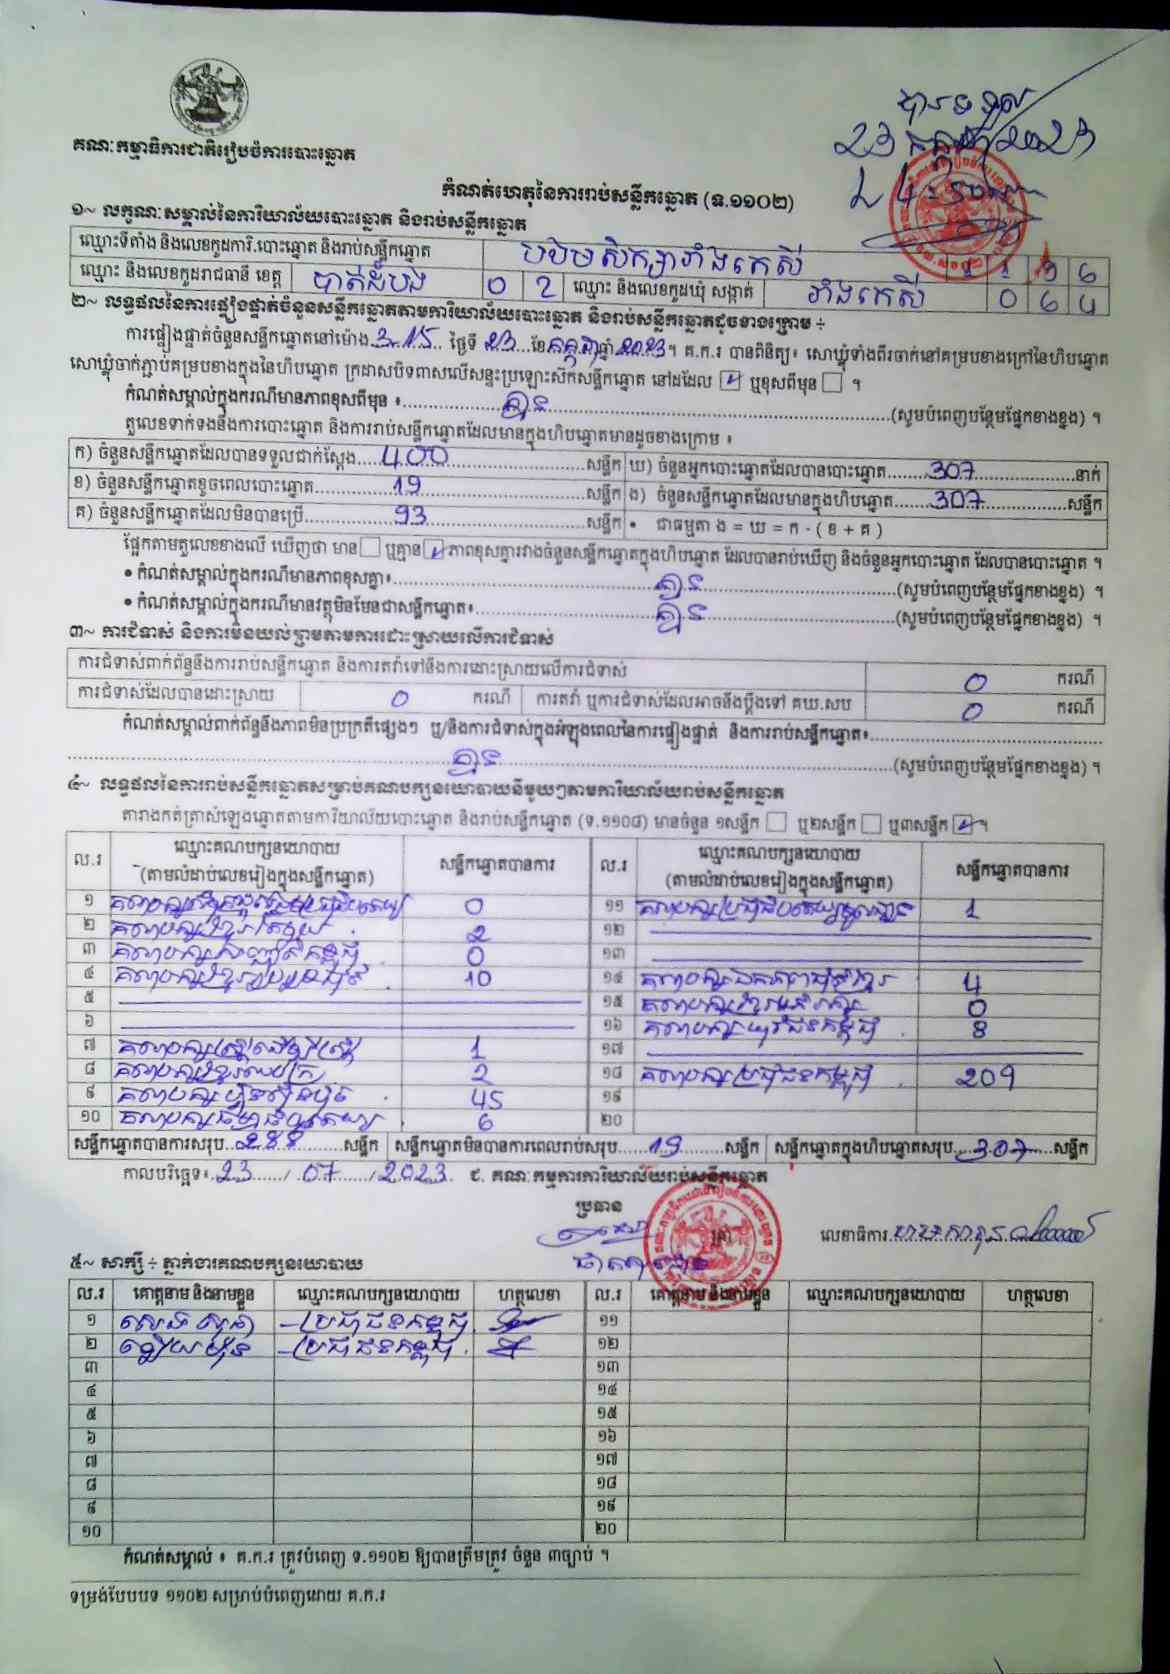 គណៈកម្មាធិការជាតិរៀបចំការបោះឆ្នោត
បានទទួល
23 កក្កដា 2023
កំណត់ហេតុនៃការរាប់សន្លឹកឆ្នោត (ទ.១១០២)
១~ លក្ខណៈសម្គាល់នៃការិយាល័យបោះឆ្នោត និងរាប់សន្លឹកឆ្នោត
ឈ្មោះទីតាំង និងលេខកូដការិ.បោះឆ្នោត និងរាប់សន្លឹកឆ្នោត បឋមសិក្សាវាំងកេសី
ឈ្មោះ និងលេខកូដរាជធានី ខេត្ត បាត់ដំបង 0 2 ឈ្មោះ និងលេខកូដឃុំ សង្កាត់ វាំងកេសី 0 6 4
២~ លទ្ធផលនៃការផ្ទៀងផ្ទាត់ចំនួនសន្លឹកឆ្នោតតាមការិយាល័យបោះឆ្នោត និងរាប់សន្លឹកឆ្នោតដូចខាងក្រោម ÷
ការផ្ទៀងផ្ទាត់ចំនួនសន្លឹកឆ្នោតនៅម៉ោង 3:15 ថ្ងៃទី 23 ខែ កក្កដា ឆ្នាំ 2023 ។ គ.ក.រ បានពិនិត្យ៖ សោឃ្លុំទាំងពីរចាក់នៅគម្របខាងក្រៅនៃហិបឆ្នោត
សោឃ្លុំចាក់ភ្ជាប់គម្របខាងក្នុងនៃហិបឆ្នោត ក្រដាសបិទពាសលើសន្ទះប្រឡោះស៊កសន្លឹកឆ្នោត នៅដដែល ☑ ឬខុសពីមុន ☐ ។
កំណត់សម្គាល់ក្នុងករណីមានភាពខុសពីមុន ៖ គ្មាន (សូមបំពេញបន្ថែមផ្នែកខាងខ្នង) ។
តួលេខទាក់ទងនឹងការបោះឆ្នោត និងការរាប់សន្លឹកឆ្នោតដែលមានក្នុងហិបឆ្នោតមានដូចខាងក្រោម ៖
ក) ចំនួនសន្លឹកឆ្នោតដែលបានទទួលជាក់ស្តែង 400 សន្លឹក ឃ) ចំនួនអ្នកបោះឆ្នោតដែលបានបោះឆ្នោត 307 នាក់
ខ) ចំនួនសន្លឹកឆ្នោតខូចពេលបោះឆ្នោត សន្លឹក ង) ចំនួនសន្លឹកឆ្នោតដែលមានក្នុងហិបឆ្នោត 307 សន្លឹក
គ) ចំនួនសន្លឹកឆ្នោតដែលមិនបានប្រើ 93 សន្លឹក • ជាធម្មតា ង = ឃ = ក - ( ខ + គ )
ផ្អែកតាមតួលេខខាងលើ ឃើញថា មាន ☐ ឬគ្មាន ☑ ភាពខុសគ្នារវាងចំនួនសន្លឹកឆ្នោតក្នុងហិបឆ្នោត ដែលបានរាប់ឃើញ និងចំនួនអ្នកបោះឆ្នោត ដែលបានបោះឆ្នោត ។
• កំណត់សម្គាល់ក្នុងករណីមានភាពខុសគ្នា៖ គ្មាន (សូមបំពេញបន្ថែមផ្នែកខាងខ្នង) ។
• កំណត់សម្គាល់ក្នុងករណីមានវត្ថុមិនមែនជាសន្លឹកឆ្នោត៖ គ្មាន (សូមបំពេញបន្ថែមផ្នែកខាងខ្នង) ។
៣~ ការជំទាស់ និងការមិនយល់ព្រមតាមការដោះស្រាយលើការជំទាស់
ការជំទាស់ពាក់ព័ន្ធនឹងការរាប់សន្លឹកឆ្នោត និងការតវ៉ាទៅនឹងការដោះស្រាយលើការជំទាស់ 0 ករណី
ការជំទាស់ដែលបានដោះស្រាយ 0 ករណី ការតវ៉ា ឬការជំទាស់ដែលអាចនឹងប្តឹងទៅ គឃ.សប 0 ករណី
កំណត់សម្គាល់ពាក់ព័ន្ធនឹងភាពមិនប្រក្រតីផ្សេងៗ ឬ/និងការជំទាស់ក្នុងអំឡុងពេលនៃការផ្ទៀងផ្ទាត់ និងការរាប់សន្លឹកឆ្នោត៖
គ្មាន (សូមបំពេញបន្ថែមផ្នែកខាងខ្នង) ។
៤~ លទ្ធផលនៃការរាប់សន្លឹកឆ្នោតសម្រាប់គណបក្សនយោបាយនីមួយៗតាមការិយាល័យរាប់សន្លឹកឆ្នោត
តារាងកត់ត្រាសំឡេងឆ្នោតតាមការិយាល័យបោះឆ្នោត និងរាប់សន្លឹកឆ្នោត (ទ.១១០៨) មានចំនួន ១សន្លឹក ☐ ឬ២សន្លឹក ☐ ឬ៣សន្លឹក ☑ ។
ល.រ ឈ្មោះគណបក្សនយោបាយ (តាមលំដាប់លេខរៀងក្នុងសន្លឹកឆ្នោត) សន្លឹកឆ្នោតបានការ ល.រ ឈ្មោះគណបក្សនយោបាយ (តាមលំដាប់លេខរៀងក្នុងសន្លឹកឆ្នោត) សន្លឹកឆ្នោតបានការ
១ 0 ១១ 1
២ 2 ១២
៣ 0 ១៣
៤ 10 ១៤ 4
៥ ១៥ 0
៦ ១៦ គណបក្សយុវជនកម្ពុជា 8
៧ គណបក្សស្ត្រីដើម្បីស្ត្រី 1 ១៧
៨ 2 ១៨ គណបក្សប្រជាជនកម្ពុជា 209
៩ គណបក្សហ៊្វុនស៊ិនប៉ិច 45 ១៩
១០ 6 ២០
សន្លឹកឆ្នោតបានការសរុប 288 សន្លឹក សន្លឹកឆ្នោតមិនបានការពេលរាប់សរុប 19 សន្លឹក សន្លឹកឆ្នោតក្នុងហិបឆ្នោតសរុប 307 សន្លឹក
កាលបរិច្ឆេទ៖ 23 / 07 / 2023 ជ. គណៈកម្មការការិយាល័យរាប់សន្លឹកឆ្នោត
ប្រធាន
លេខាធិការ
៥~ សាក្សី ÷ ភ្នាក់ងារគណបក្សនយោបាយ
ល.រ គោត្តនាម និងនាមខ្លួន ឈ្មោះគណបក្សនយោបាយ ហត្ថលេខា ល.រ គោត្តនាម និងនាមខ្លួន ឈ្មោះគណបក្សនយោបាយ ហត្ថលេខា
១ ប្រជាជនកម្ពុជា ១១
២ ប្រជាជនកម្ពុជា ១២
៣ ១៣
៤ ១៤
៥ ១៥
៦ ១៦
៧ ១៧
៨ ១៨
៩ ១៩
១០ ២០
កំណត់សម្គាល់ ៖ គ.ក.រ ត្រូវបំពេញ ទ.១១០២ ឱ្យបានត្រឹមត្រូវ ចំនួន ៣ច្បាប់ ។
ទម្រង់បែបបទ ១១០២ សម្រាប់បំពេញដោយ គ.ក.រ